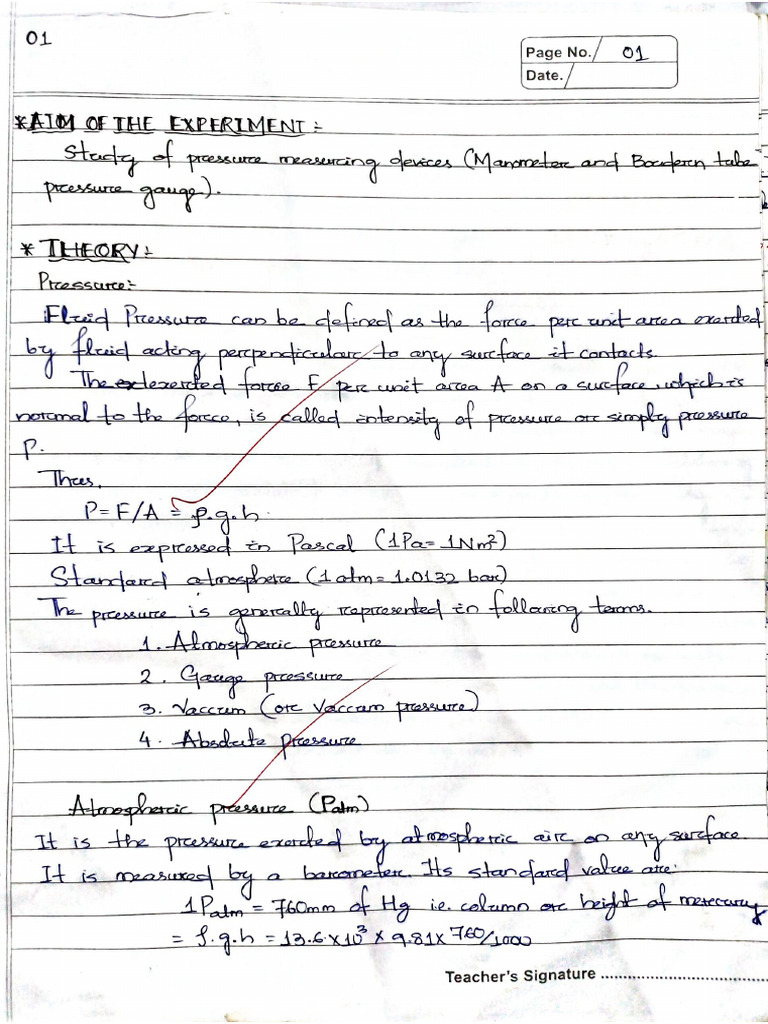 01
Page No. 01
Date.
*AIM OF THE EXPERIMENT:-
Study of pressure measuring devices (Manometer and Bourdern tube
pressure gauge).
* THEORY:-
Pressure:-
Fluid Pressure can be defined as the force per unit area exerted
by fluid acting perpendicular to any surface it contacts.
The exerted force F per unit area A on a surface, which is
normal to the force, is called intensity of pressure or simply pressure
P.
Thus,
P = F/A = ρ.g.h.
It is expressed in Pascal (1Pa = 1Nm²)
Standard atmosphere (1 atm = 1.0132 bar)
The pressure is generally represented in following terms.
1. Atmospheric pressure
2. Gauge pressure
3. Vaccum (or Vaccum pressure)
4. Absolute pressure
Atmospheric pressure (Patm)
It is the pressure exerted by atmospheric air on any surface.
It is measured by a barometer. Its standard value are:
1Patm = 760mm of Hg i.e. column or height of mercury
= ρ.g.h = 13.6 × 10³ × 9.81 × 760/1000
Teacher's Signature